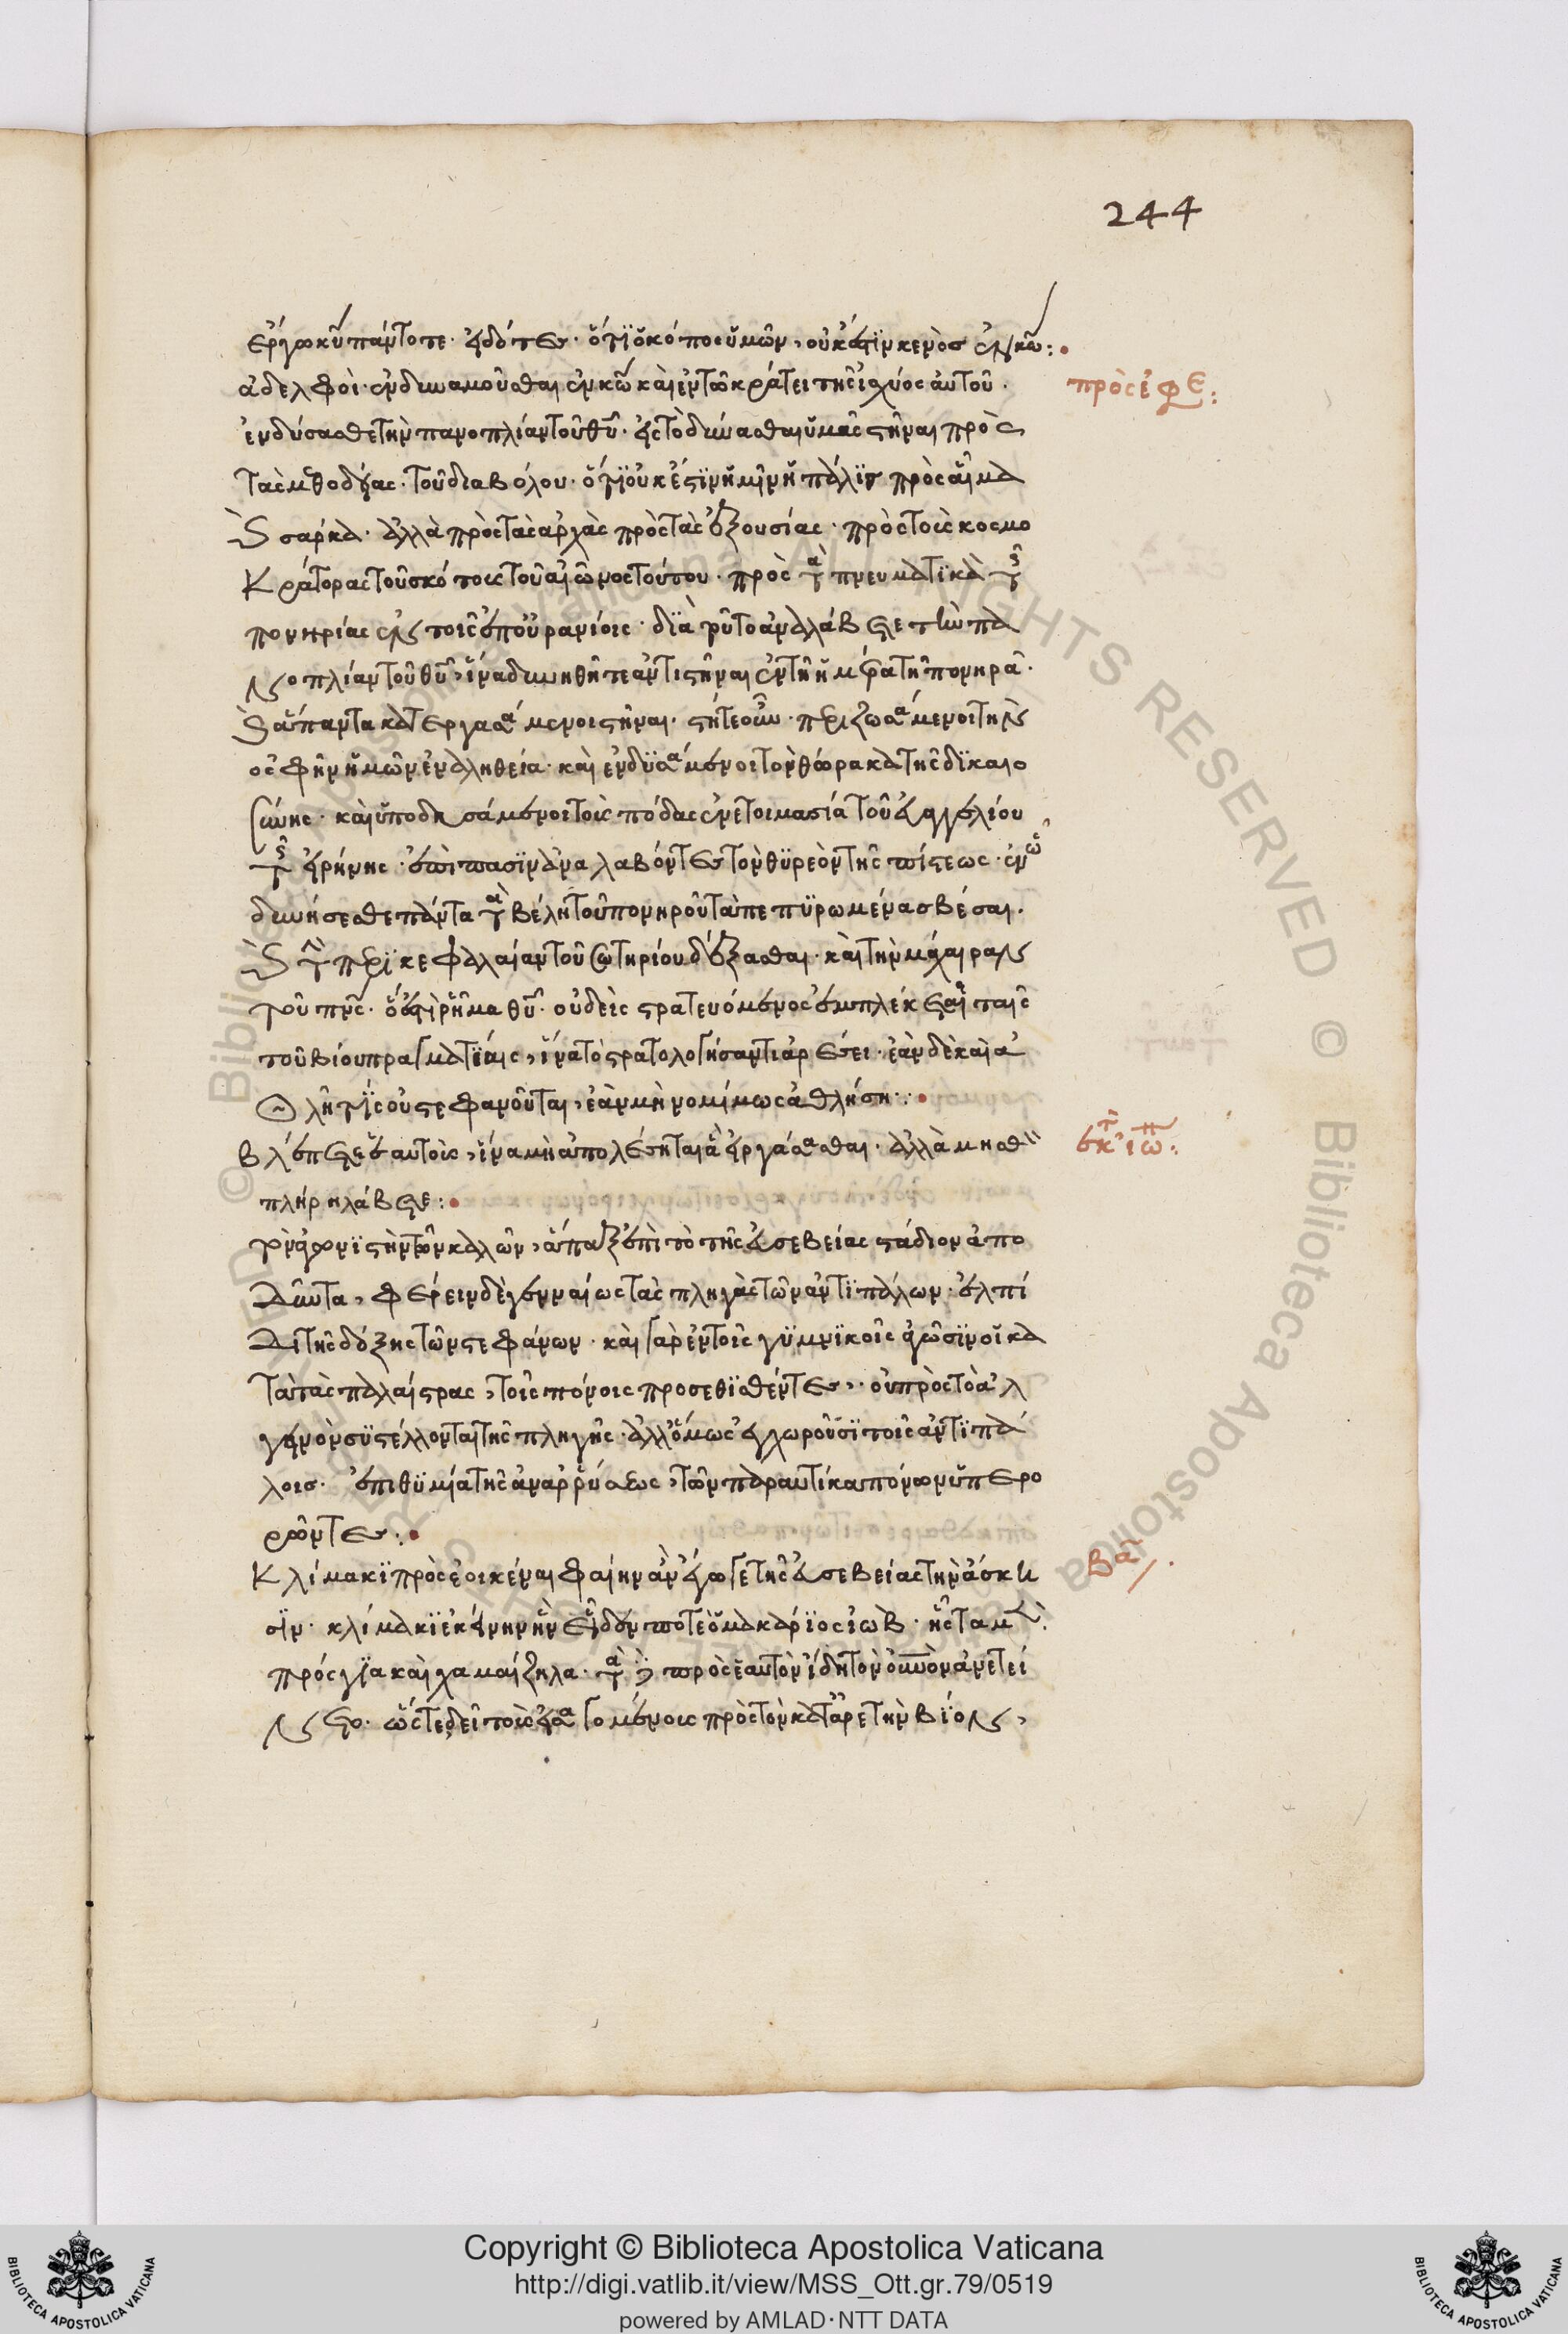 244
ἔργω κ̅υ̅ πάντοτε· εἰδότες· ὅτι ὁ κόπος ὑμῶν, οὐκ ἔστιν κενὸς ἐν κ̅ω̅:
ἀδελφοὶ· ἐνδυναμοῦσθαι ἐν κ̅ω̅ καὶ ἐν τῶ κράτει τῆς ἰσχύος αὐτοῦ.
πρὸς ἐφε:
ἐνδύσασθε τὴν πανοπλίαν τοῦ θ̅υ̅· εἰς τὸ δύνασθαι ὑμᾶς στῆναι πρὸς
τὰς μεθοδείας· τοῦ διαβόλου· ὅτι οὐκ ἔστιν ἡμῖν ἡ πάλις πρὸς αἷμα
καὶ σάρκα· ἀλλὰ πρὸς τὰς ἀρχὰς πρὸς τὰς ἐξουσίας· πρὸς τοὺς κοσμο
κράτορας τοῦ σκότους τοῦ αἰῶνος τούτου· πρὸς τὰ πνευματικὰ τῆς
πονηρίας ἐν τοῖς ἐπουρανίοις· διὰ τοῦτο ἀναλάβετε τὴν πα
νοπλίαν τοῦ θ̅υ̅, ἵνα δυνηθῆτε ἀντιστῆναι ἐν τῆ ἡμέρα τῆ πονηρᾶ.
καὶ ἅπαντα κατεργασάμενοι στῆναι· στῆτε οὖν· περιζωσάμενοι τὴν
ὀσφὴν ἡμῶν ἐν ἀληθεία· καὶ ἐνδυσάμενοι τὸν θώρακα τῆς δικαιο
σύνης· καὶ ὑποδησάμενοι τοὺς πόδας ἐν ἑτοιμασία τοῦ εὐαγγελίου
τῆς εἰρήνης· ἐπὶ πᾶσιν ἀναλαβόντες τὸν θυρεὸν τῆς πίστεως· ἐν ὧ
δυνήσεσθε πάντα τὰ βέλη τοῦ πονηροῦ τὰ πεπυρωμένα σβέσαι.
καὶ τὴν περικεφαλαίαν τοῦ σωτηρίου δέξασθαι· καὶ τὴν μάχαιραν
τοῦ π̅ν̅ς̅· ὅ ἐστι ῥῆμα θ̅υ̅· οὐδεὶς στρατευόμενος ἐμπλέκεται ταῖς
τοῦ βίου πραγματίαις, ἵνα τὸ στρατολογήσαντι ἀρέσει· ἐὰν δὲ καὶ ἀ
θλῆ τις οὐ στεφανοῦται, ἐὰν μὴ νομίμως ἀθλήση:
βλέπετε ἑαυτοὺς, ἵνα μὴ ἀπολέσηται ἃ εἰργάσασθαι· ἀλλὰ μισθὸν
ἐκ τ ιω:
πλήρη λάβετε:
τὸν ἀφνιστὴν τῶν καλῶν, ἅπαξ ἐπὶ τὸ τῆς εὐσεβείας στάδιον ἀπο
δύντα, φέρειν δὲ γενναίως τὰς πληγὰς τῶν ἀντιπάλων· ἐλπί
δι τῆς δόξης τῶν στεφάνων· καὶ γὰρ ἐν τοῖς γυμνικοῖς ἀγῶσιν οἱ κα
τὰ τὰς παλαίστρας, τοῖς πόνοις προσεθισθέντες, οὐ πρὸς τὸ ἀλ
γεινὸν συστέλλονται τῆς πληγῆς· ἀλλ' ὅμως ἐγχωροῦσι τοῖς ἀντιπά
λοις· ἐπιθυμία τῆς ἀναρρύσεως, τῶν παραυτίκα πόνων ὑπερο
ρῶντες:
κλίμακι προσεοικέναι φαίην ἂν ἔγωγε τῆς εὐσεβείας τὴν ἄσκη
βα
σιν· κλίμακι ἐκείνην ἣν εἶδέν ποτε ὁ μακάριος ἰὼβ· ἧς τὰ μὲν
πρόσγια καὶ χαμαίζηλα· τὰ δὲ πρὸς ἑαυτὸν ἤδη τὸν ο̅υ̅ν̅ο̅ν ἀνετεί
νετο· ὥστε δεῖ τοὺς εἰσαγομένους πρὸς τὸν κατ' ἀρετὴν βίον,
Copyright © Biblioteca Apostolica Vaticana
http://digi.vatlib.it/view/MSS_Ott.gr.79/0519
powered by AMLAD·NTT DATA